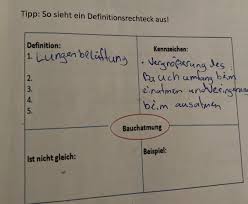 Tipp: So sieht ein Definitionsrechteck aus!
Definition:
1. Lungenbelüftung
2.
3.
4.
5.
Kennzeichen:
• Vergrößerung des
Bauchumfang beim
einatmen und Veringerung
beim ausatmen
Bauchatmung
Ist nicht gleich:
Beispiel: